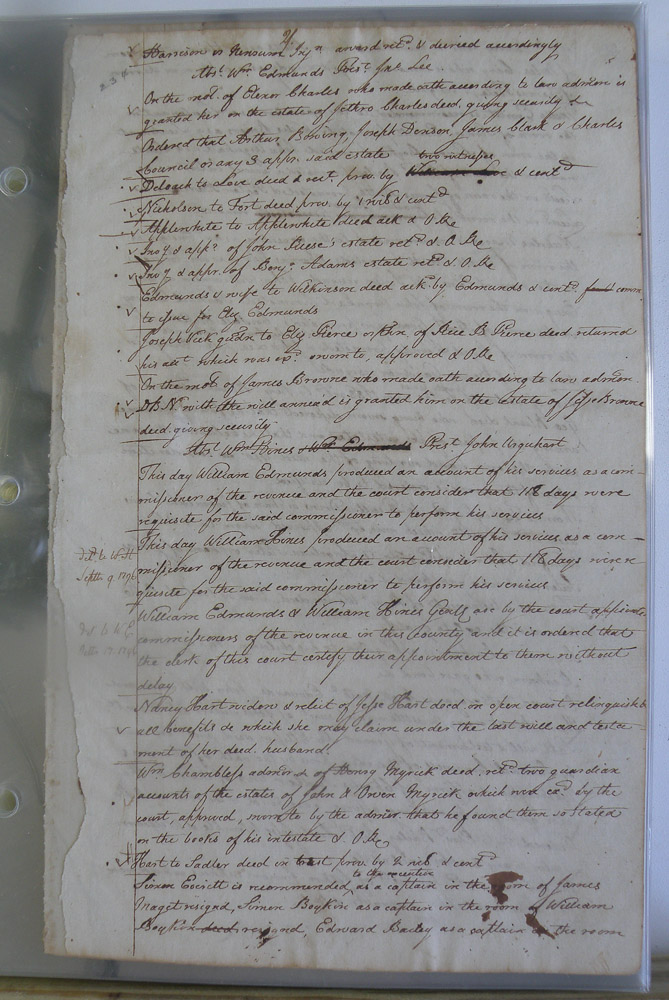 Harrison vs Newsum Injn award retd. & decried accordingly
Abst. Wm. Edmunds Prest. Jas. Lee
On the mot. of Elenor Charles who made oath according to law admōn is
granted her on the estate of Jethro Charles deed. giving security &c
Ordered that Arthur Bowing, Joseph Denson, James Clark & Charles
Council or any 3 appr. said estate
two witnesses
Deloach to Love deed & rect. prov. by & contd
Nicholson to Fort deed prov. by 1 witt & contd
Applewhite to Applewhite deed ack & O.Re
Invy. & appt. of John Reese's estate retd. & O.Re
Invy. & appt. of Benja. Adams estate retd. & O.Re
Edmunds & wife to Wilkinson deed ack. by Edmunds & contd. comn.
to issue for Eliz Edmunds
Joseph Vick guardn. to Eliz Pierce orphn. of Rice B. Pierce deed. returned
his acct. which was exd. sworn to, approved & O.Re
On the mot. of James Browne who made oath according to law admōn.
Db. N. with the will annead is granted him on the estate of Jesse Browne
deed. giving security
Abst. Wm. Hines & Wm. Edmunds Prest. John Urquhart
This day William Edmunds produced an account of his services as a com-
missioner of the revenue and the court consider that 118 days were
requisite for the said commissioner to perform his services
This day William Hines produced an account of his services as a com-
missioner of the revenue and the court consider that 118 days were re
quisite for the said commissioner to perform his services
Isd. to W. H
Septr. 9. 1796
William Edmunds & William Hines Gents. are by the court appoint
commissioners of the revenue in this county and it is ordered that
the clerk of this court certify their appointment to them without
delay
Isd. to W. E.
Nancy Hart widow & relict of Jesse Hart deed. in open court relinquish
all benefits &c which she may claim under the last will and testa-
ment of her deed. husband.
Wm. Chambless admōr. &c of Henry Myrick deed. retd. two guardian
accounts of the estates of John & Owen Myrick which were exd. by the
court, approved, sworn to by the admōr. that he found them so stated
on the books of his intestate & O.Re
Hart to Sadler deed in trust prov. by 2 witt & contd
to the executive
Simon Everitt is recommended as a captain in the room of James
Maget resigned, Simon Boykin as a captain in the room of William
Boykin deed. resigned, Edward Bailey as a captain in the room